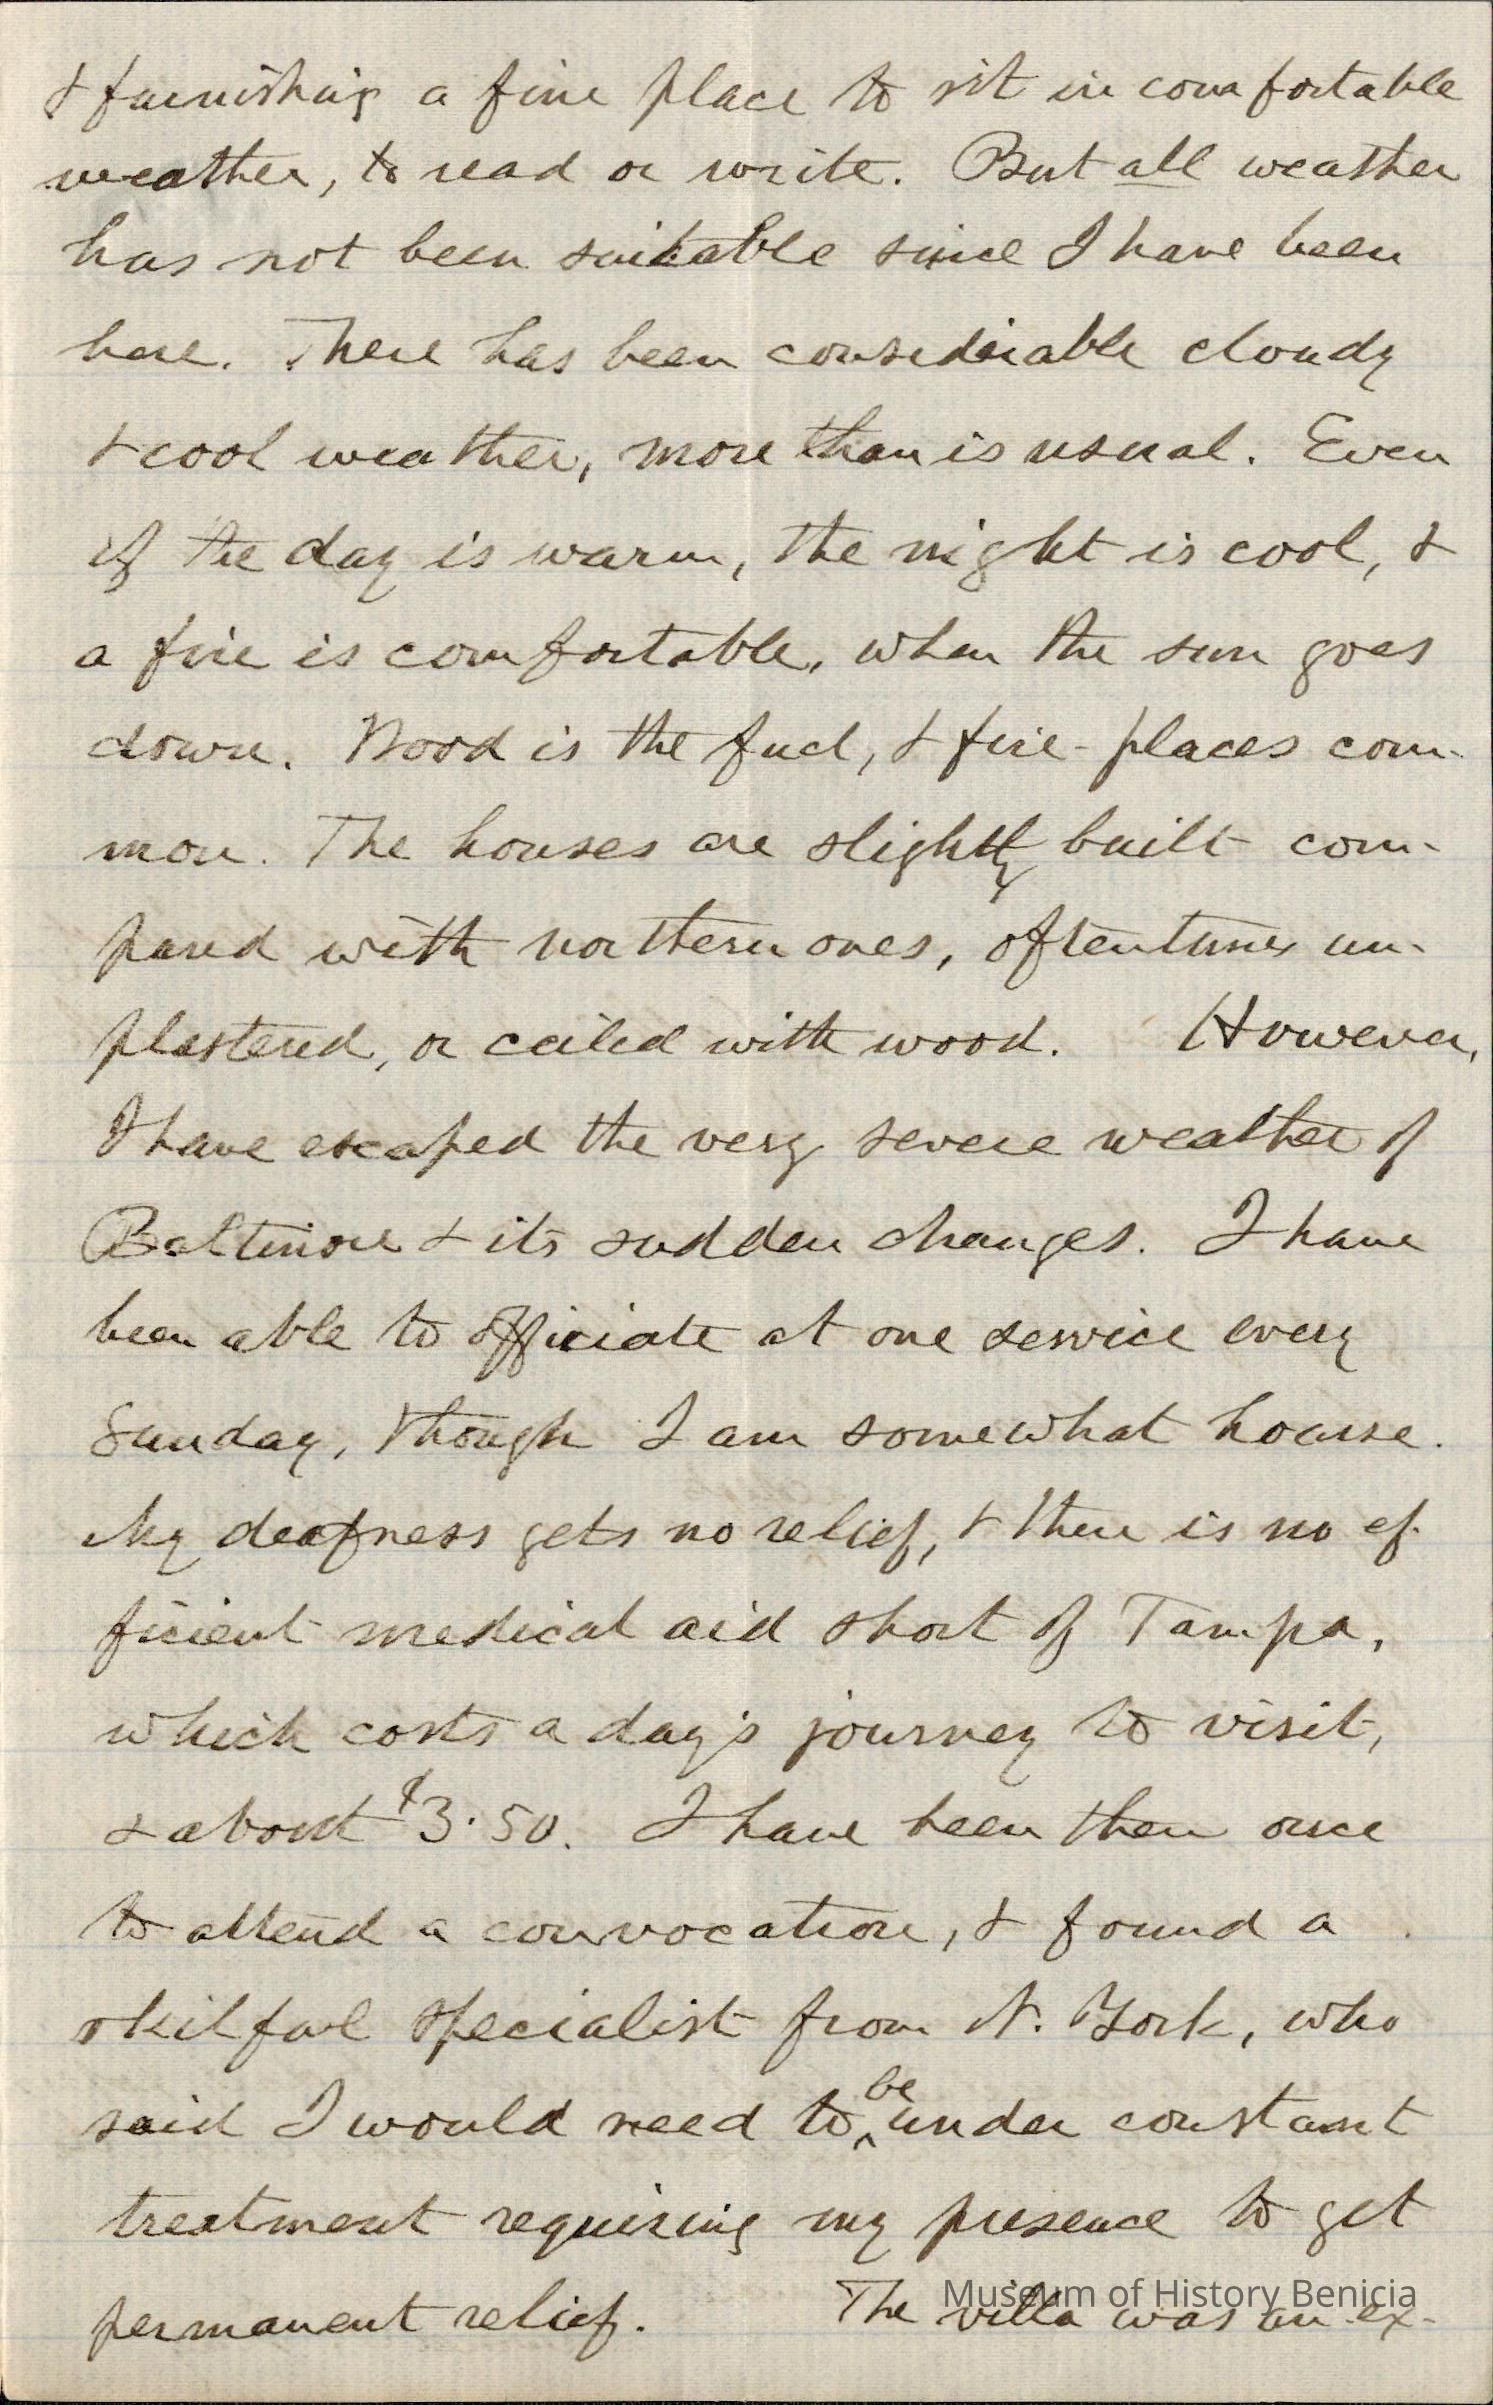 & furnishing a fine place to sit in comfortable
weather, to read or write. But all weather
has not been suitable since I have been
here. There has been considerable cloudy
& cool weather, more than is usual. Even
if the day is warm, the night is cool, &
a fire is comfortable, when the sun goes
down. Wood is the fuel, & fire-places com-
mon. The houses are slightly built com-
pared with northern ones, oftentimes un-
plastered, or ceiled with wood. However,
I have escaped the very severe weather of
Baltimore & its sudden changes. I have
been able to officiate at one service every
Sunday, though I am somewhat hoarse.
My deafness gets no relief, & there is no ef-
ficient medical aid short of Tampa,
which costs a day's journey to visit,
& about $3.50. I have been there once
to attend a convocation, & found a
skilful specialist from N. York, who
said I would need to be under constant
treatment requiring my presence to get
permanent relief. The villa was an ex-
Museum of History Benicia